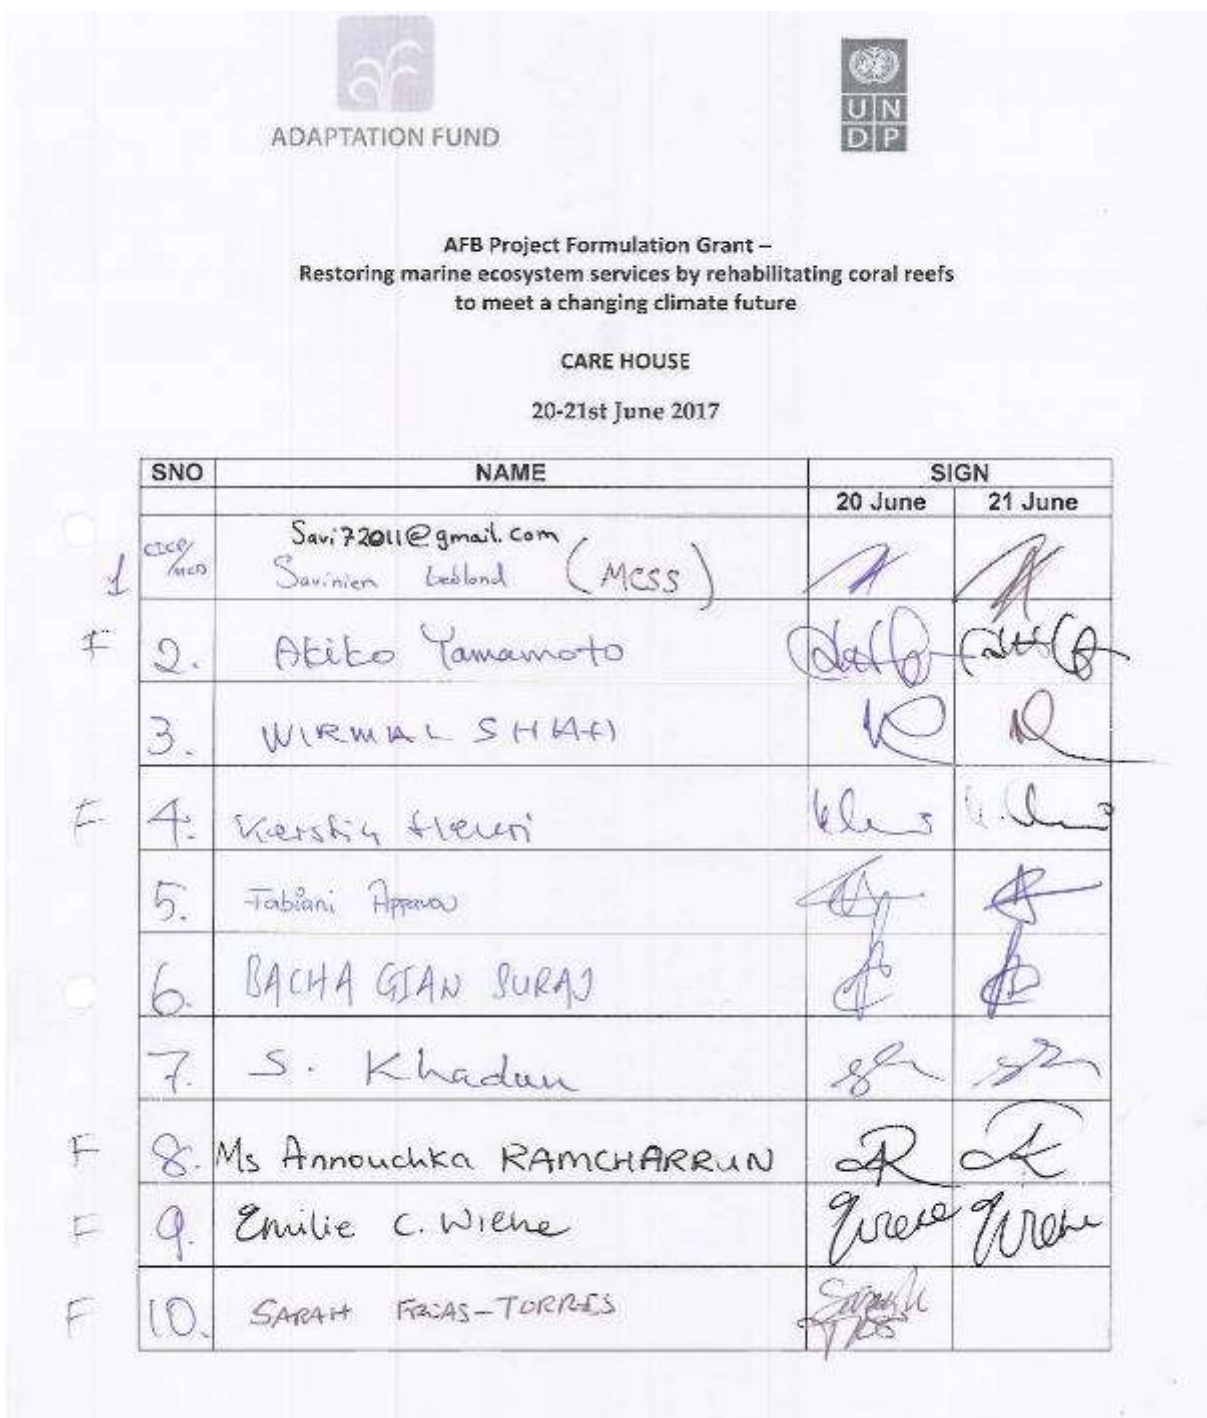 ADAPTATION FUND
UN
DP
AFB Project Formulation Grant –
Restoring marine ecosystem services by rehabilitating coral reefs
to meet a changing climate future
CARE HOUSE
20-21st June 2017
SNO NAME SIGN
20 June 21 June
Savi72011@gmail.com
1 Savinien Leblond (MCSS)
F 2. Akiko Yamamoto
3. WIRMAL SHAH
F 4. Kerstin Henri
5. Fabiani Appavou
6. BACHA GIAN SURAJ
7. S. Khadun
F 8. Ms Annouchka RAMCHARRUN
F 9. Emilie C. Wiehe
F 10. SARAH FRIAS-TORRES